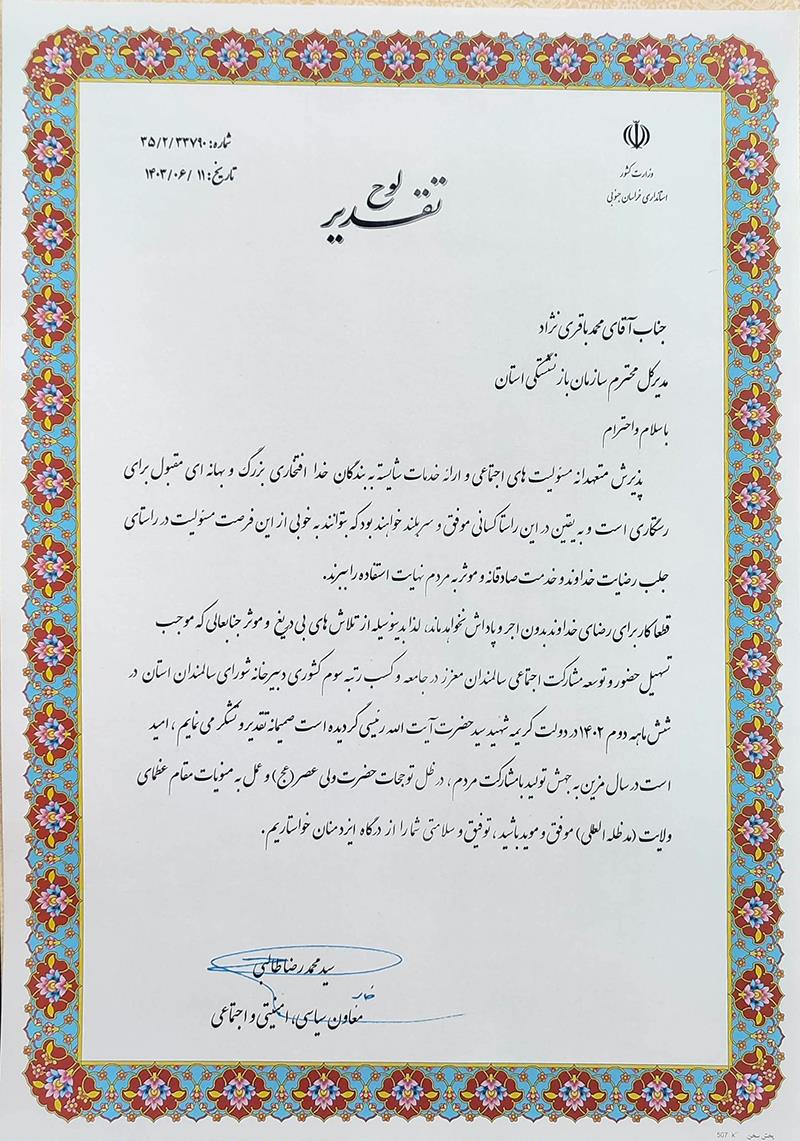 وزارت کشور
استانداری خراسان جنوبی
شماره: ۳۵/۲/۳۳۷۹۰
تاریخ: ۱۴۰۳/۰۶/۱۱
لوح
تقدیر
جناب آقای محمد باقری نژاد
مدیرکل محترم سازمان بازنشستگی استان
با سلام و احترام
پذیرش متعهدانه مسئولیت های اجتماعی و ارائه خدمات شایسته به بندگان خدا افتخاری بزرگ و بهانه ای مقبول برای
رستگاری است و به یقین در این راستا کسانی موفق و سربلند خواهند بود که بتوانند به خوبی از این فرصت مسئولیت در راستای
جلب رضایت خداوند و خدمت صادقانه و موثر به مردم نهایت استفاده را ببرند.
قطعا کار برای رضای خداوند بدون اجر و پاداش نخواهد ماند، لذا بدینوسیله از تلاش های بی دریغ و موثر جنابعالی که موجب
تسهیل حضور و توسعه مشارکت اجتماعی سالمندان معزز در جامعه و کسب رتبه سوم کشوری دبیرخانه شورای سالمندان استان در
شش ماهه دوم ۱۴۰۲ در دولت کریمه شهید سید حضرت آیت الله رئیسی گردیده است صمیمانه تقدیر و تشکر می نمایم، امید
است در سال مزین به جهش تولید با مشارکت مردم، در ظل توجهات حضرت ولی عصر (عج) و عمل به منویات مقام عظمای
ولایت (مد ظله العالی) موفق و موید باشید، توفیق و سلامتی شما را از درگاه ایزد منان خواستاریم.
سید محمدرضا طالبی
معاون سیاسی، امنیتی و اجتماعی
پخش سخن K 507